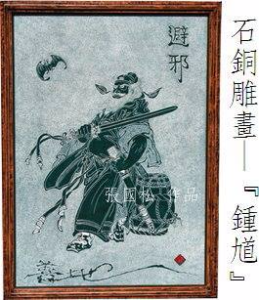 石銅雕畫—『鍾馗』
避邪
張國松 作品